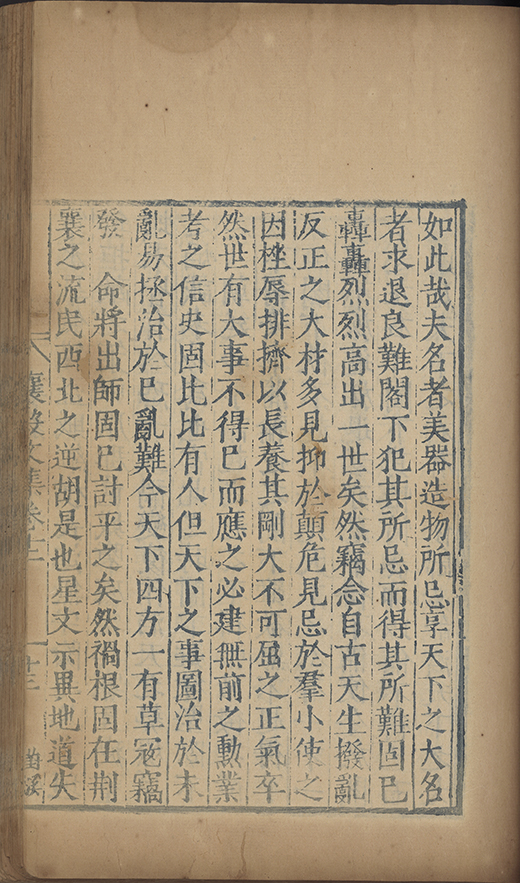 如此哉夫名者美器造物所忌享天下之大名
者求退良難閣下犯其所忌而得其所難固已
轟轟烈烈高出一世矣然竊念自古天生撥亂
反正之大材多見抑於顛危見忌於羣小使之
因挫辱排擠以長養其剛大不可屈之正氣卒
然世有大事不得已而應之必建無前之勳業
考之信史固比比有人但天下之事圖治於未
亂易拯治於已亂難今天下四方一有草寇竊
發　命將出師固已討平之矣然禍根固在荆
襄之流民西北之逆胡是也星文示異地道失
襄毅文集卷十二
十三